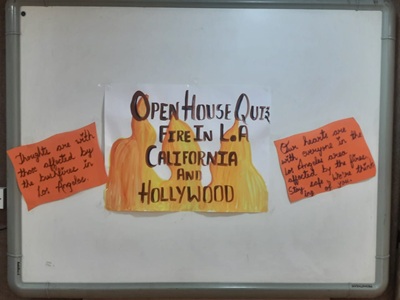 Thoughts are with
those affected by
the bushfires in
Los Angeles.
OPEN HOUSE QUIZ
FIRE IN L.A
CALIFORNIA
AND
HOLLYWOOD
Our hearts are
with everyone in the
Los Angeles area
affected by the fires.
Stay safe, we're think
ing of you.